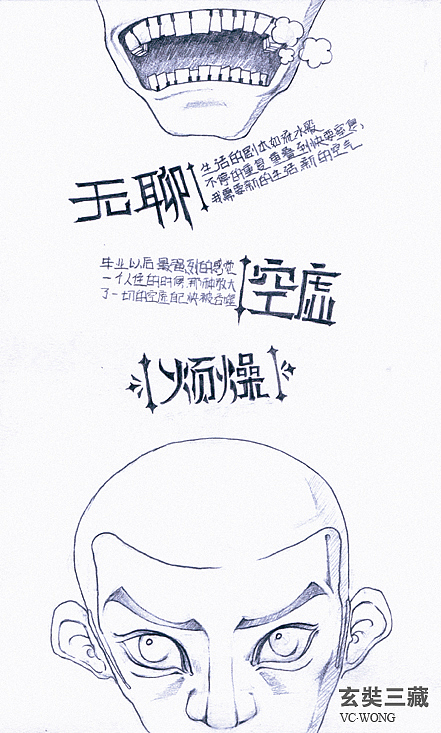 无聊
生活的剧本如流水般
不停的重复重叠到快要窒息,
我需要新的生活,新的空气
毕业以后最强烈的感觉
一个人住的时候,那种放大
了一切的空虚自己快被吞噬
空虚
烦燥
玄奘三藏
VC-WONG